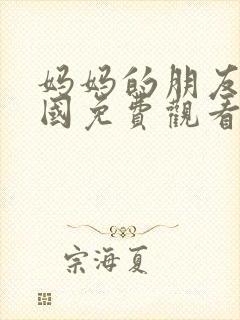 妈妈的朋友
國免費觀看
宗海夏